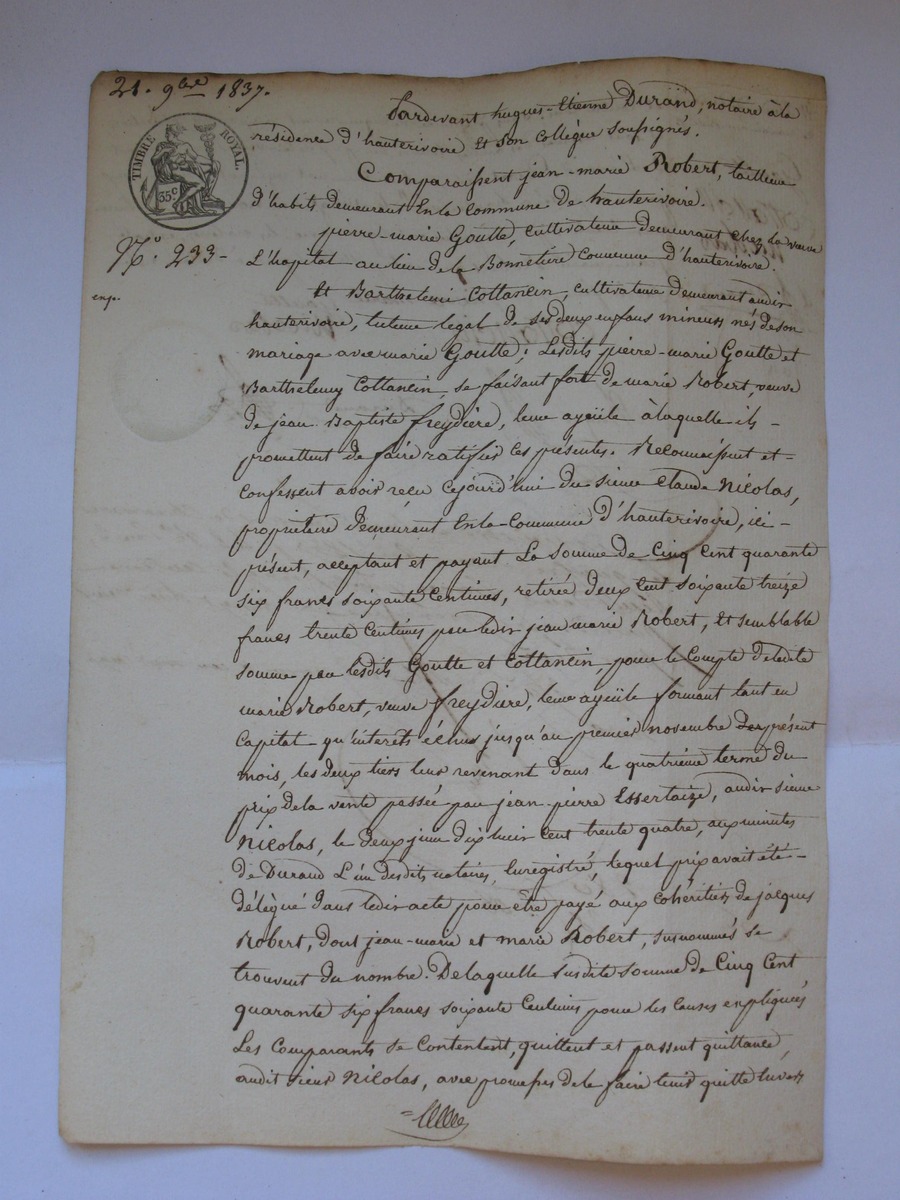 21. 9bre 1837.
TIMBRE ROYAL.
35 c
N.° 233-
enge.
Pardevant hugues-Etienne Durand, notaire à la
résidence d'hauterivoire et son collègue soussignés.
Comparaissent jean-marie Robert, tailleur
d'habits demeurant En la Commune de hauterivoire.
pierre-marie Goutte, cultivateur demeurant chez la veuve
L'hopital au lieu de la Bonnetière Commune d'hauterivoire.
Et Barthelemi Cottancin, cultivateur demeurant audit
hauterivoire, tuteur légal de ses deux enfans mineurs nés de son
mariage avec marie Goutte; Lesdits pierre-marie Goutte et
Barthelemy Cottancin, se faisant fort de marie Robert, veuve
de jean-Baptiste freydière, leur ayeüle à laquelle ils-
promettent de faire ratifier ces présentes. Reconnaissent et-
confessent avoir reçu cejourd'hui du sieur Claude Nicolas,
propriétaire Demeurant En la Commune d'hauterivoire, ici-
présent, acceptant et payant La somme de Cinq Cent quarante
six francs soixante Centimes, retirée deux Cent soixante treize
francs trente Centimes par ledit jean marie Robert, Et semblable
somme par lesdits Goutte et Cottancin, pour le Compte de ladite
marie Robert, veuve freydière, leur ayeüle formant tant en
Capital qu'interêts échus jusqu'au premier novembre présent
mois, les deux tiers leur revenant dans le quatrième terme du
prix de la vente passée par jean-pierre Essertaize, audit sieur
Nicolas, le deux juin dix huit Cent trente quatre, aux minutes
de Durand L'un desdits notaires, Enregistré, lequel prix avait été-
délégué dans ledit acte pour être payé aux cohéritiers de jacques
Robert, dont jean-marie et marie Robert, susnommés se
trouvent du nombre. De laquelle susdite somme de Cinq Cent
quarante six francs soixante Centimes pour les Causes expliquées
Les Comparants se Contentent, quittent et passent quittance,
audit sieur Nicolas, avec promesse de le faire tenir quitte Envers